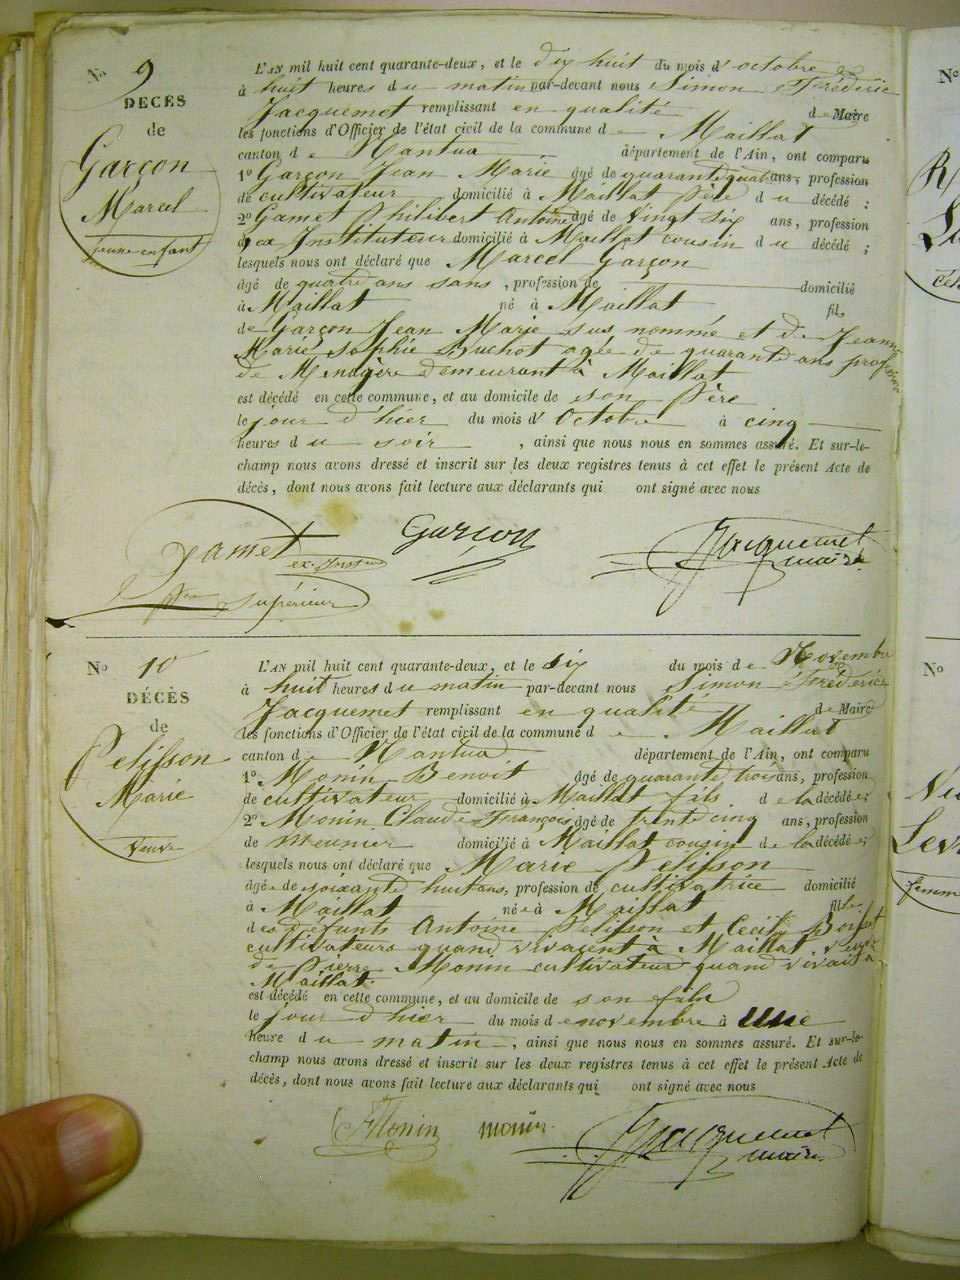 No 9
DECÈS
de
Garçon
Marcel
jeune enfant
L'AN mil huit cent quarante-deux, et le dix huit du mois d'octobre
à huit heures du matin par-devant nous Simon Fréderic
Jacquemet remplissant en qualité de Maire
les fonctions d'Officier de l'état civil de la commune de Maillat
canton de Nantua département de l'Ain, ont comparu
1º Garçon Jean Marie âgé de quarante quat ans, profession
de cultivateur domicilié à Maillat père du décédé ;
2º Gamet Philibert Antoine âgé de vingt six ans, profession
d'ex Instituteur domicilié à Maillat cousin du décédé ;
lesquels nous ont déclaré que Marcel Garçon
âgé de quatre ans sans , profession de domicilié
à Maillat né à Maillat fils
de Garçon Jean Marie sus nommé et de Jeanne
Marie Sophie agée de quarante ans profession
de Menagère demeurant à Maillat
est décédé en cette commune, et au domicile de son père
le jour d'hier du mois d'Octobre à cinq
heures du soir , ainsi que nous nous en sommes assuré. Et sur-le-
champ nous avons dressé et inscrit sur les deux registres tenus à cet effet le présent Acte de
décès, dont nous avons fait lecture aux déclarants qui ont signé avec nous
Gamet Garçon Jacquemet
ex-Inst maire
supérieur
No 10
DÉCÈS
de
Pelisson
Marie
veuve
L'AN mil huit cent quarante-deux, et le dix du mois de Novembre
à huit heures du matin par-devant nous Simon Fréderic
Jacquemet remplissant en qualité de Maire
les fonctions d'Officier de l'état civil de la commune de Maillat
canton de Nantua département de l'Ain, ont comparu
1º Monin Benoit âgé de quarante trois ans, profession
de cultivateur domicilié à Maillat fils de la décédée ;
2º Monin Claude François âgé de trente cinq ans, profession
de meunier domicilié à Maillat cousin de la décédée ;
lesquels nous ont déclaré que Marie Pelisson
âgée de soixante huit ans, profession de cultivatrice domicilié
à Maillat née à Maillat fille
des défunts Antoine Pelisson et Cecile
cultivateurs quand vivaient à Maillat, veuve
de Pierre Monin cultivateur quand vivait à
Maillat
est décédé en cette commune, et au domicile de son fils
le jour d'hier du mois de novembre à une
heure du matin , ainsi que nous nous en sommes assuré. Et sur-le-
champ nous avons dressé et inscrit sur les deux registres tenus à cet effet le présent Acte de
décès, dont nous avons fait lecture aux déclarants qui ont signé avec nous
Monin monin Jacquemet
maire
No
No
femme